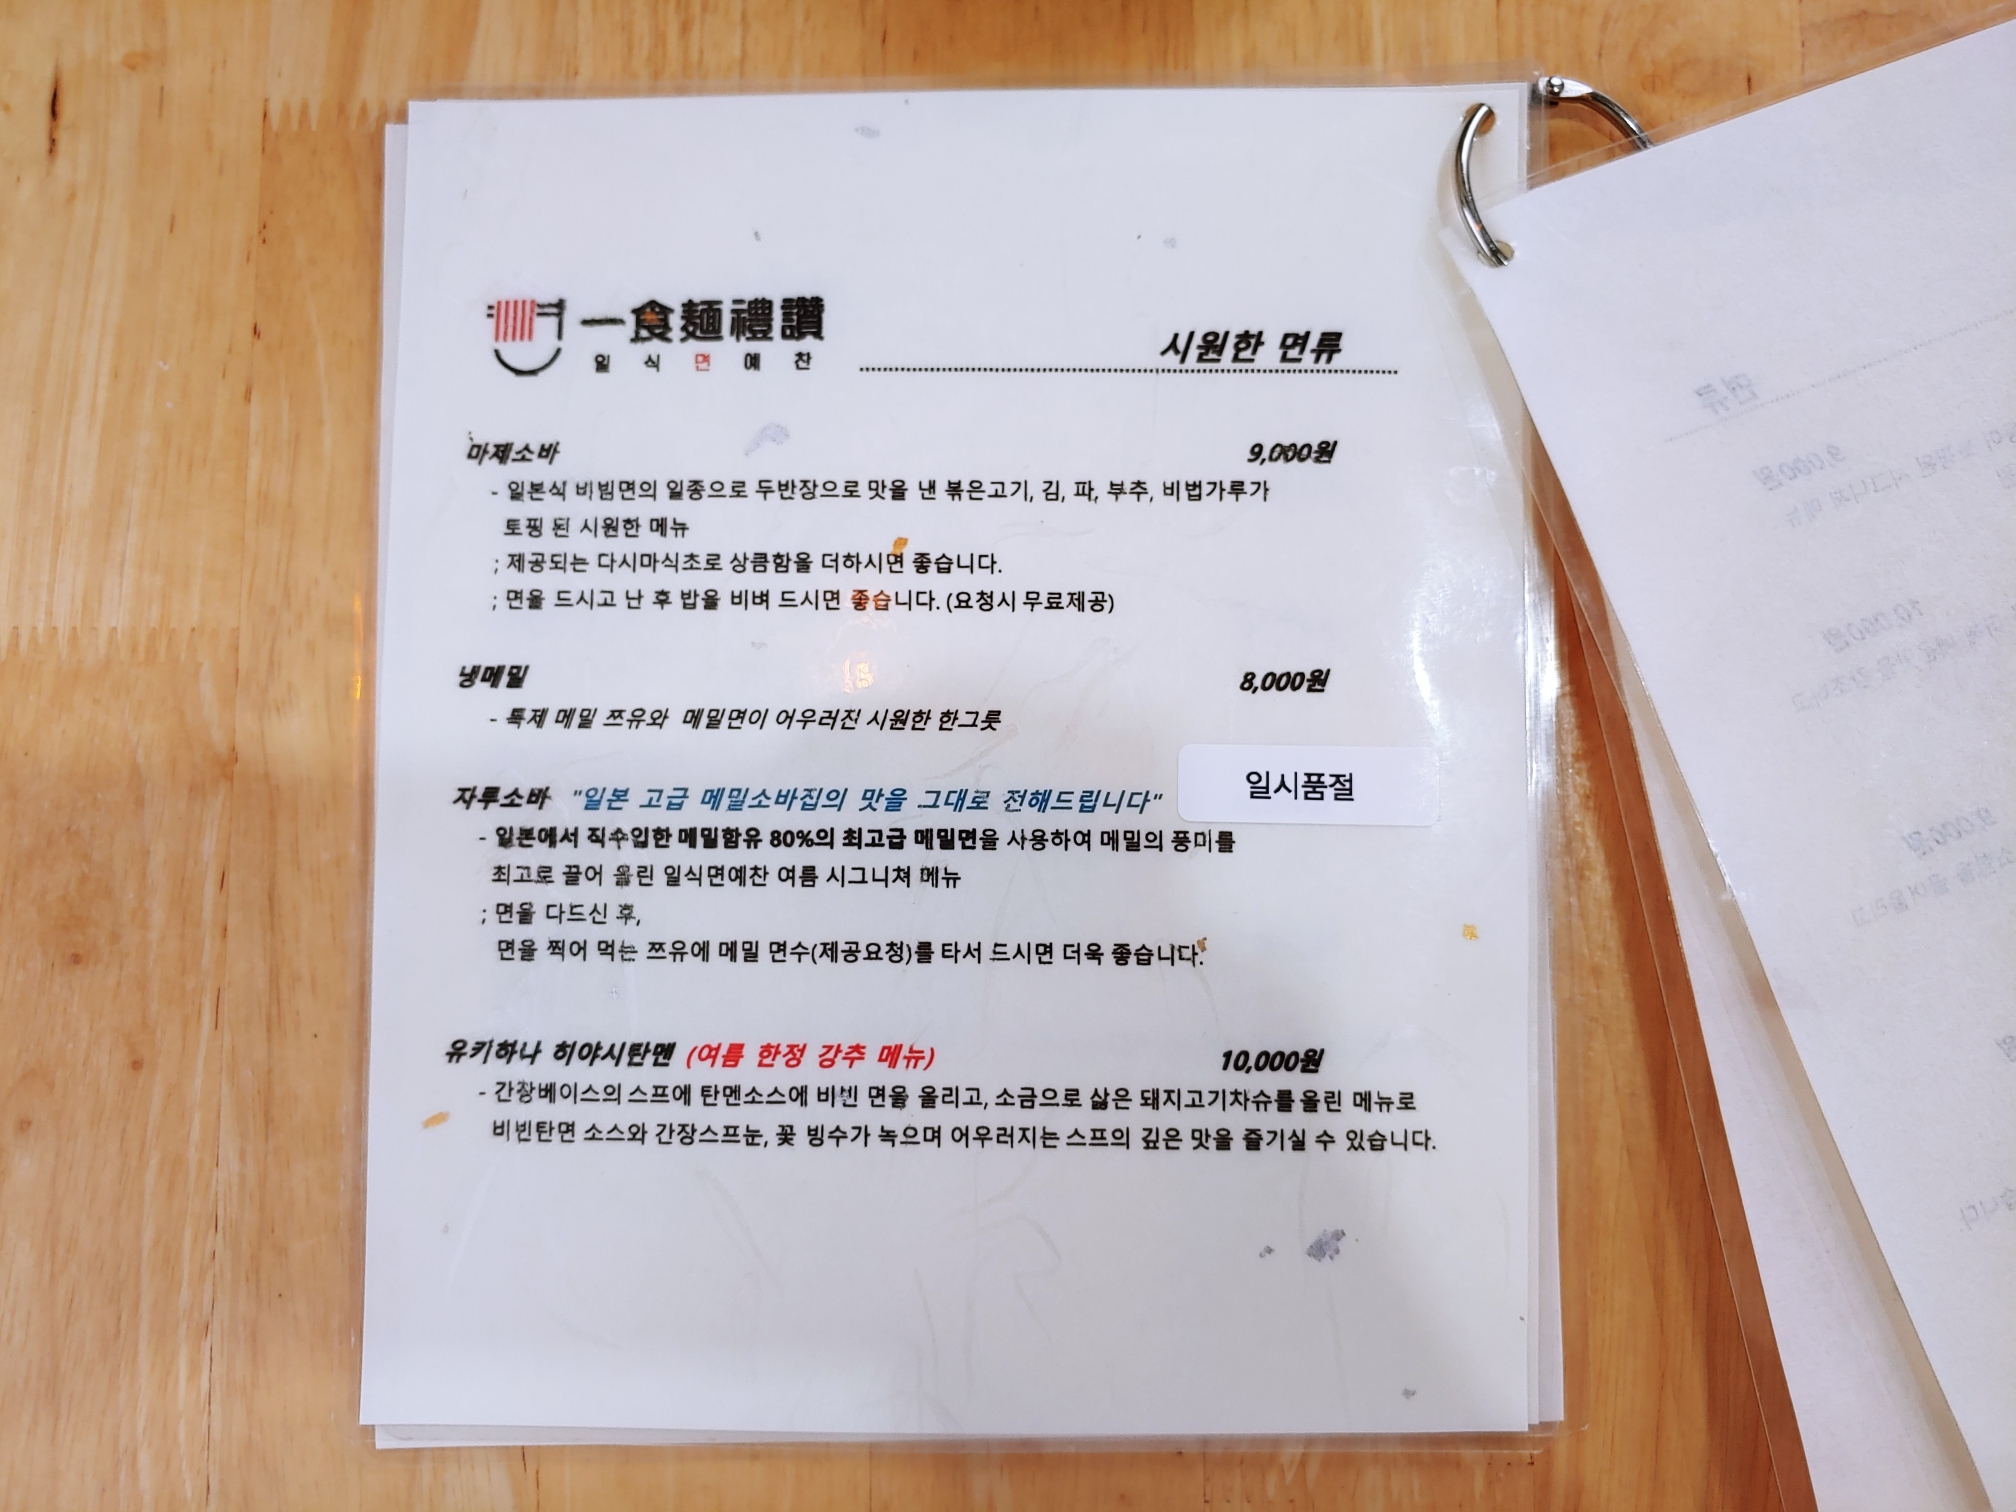 一食麵禮讚
일식면예찬
시원한 면류
마제소바 9,000원
- 일본식 비빔면의 일종으로 두반장으로 맛을 낸 볶은고기, 김, 파, 부추, 비법가루가
토핑 된 시원한 메뉴
; 제공되는 다시마식초로 상큼함을 더하시면 좋습니다.
; 면을 드시고 난 후 밥을 비벼 드시면 좋습니다. (요청시 무료제공)
냉메밀 8,000원
- 특제 메밀 쯔유와 메밀면이 어우러진 시원한 한그릇
자루소바 "일본 고급 메밀소바집의 맛을 그대로 전해드립니다" 일시품절
- 일본에서 직수입한 메밀함유 80%의 최고급 메밀면을 사용하여 메밀의 풍미를
최고로 끌어 올린 일식면예찬 여름 시그니쳐 메뉴
; 면을 다드신 후,
면을 찍어 먹는 쯔유에 메밀 면수(제공요청)를 타서 드시면 더욱 좋습니다.
유키하나 히야시탄멘 (여름 한정 강추 메뉴) 10,000원
- 간장베이스의 스프에 탄멘소스에 비빈 면을 올리고, 소금으로 삶은 돼지고기차슈를 올린 메뉴로
비빈탄면 소스와 간장스프눈, 꽃 빙수가 녹으며 어우러지는 스프의 깊은 맛을 즐기실 수 있습니다.
면류
9,000원
10,000원
9,000원